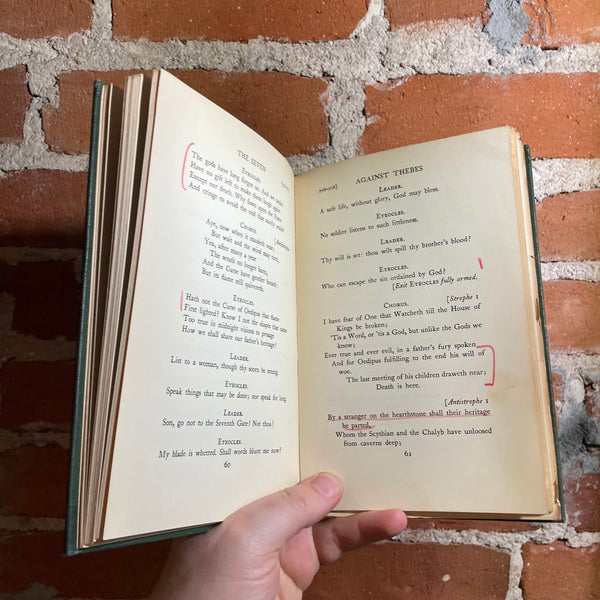 THE SEVEN
ETEOCLES.
The gods have long forgot us. And we twain
Have no gift left to make them laugh again
Except our death. Why fawn upon the
And cringe to avoid the end that surely
CHORUS.
Aye, now when it standeth near;
But wait and the wind may turn,
Yea, after many a year
The wrath no longer burn,
And the Curse have gentler breath:
But in flame still quiereth.
ETEOCLES.
Hath not the Curse of Oedipus that flame
Fire lighted? Know I not the shapes that came
Too true in midnight visions to presage
How we shall share our father's heritage?
LEADER.
List to a woman, though thy scorn be strong.
ETEOCLES.
Speak things that may be done; nor speak for long.
LEADER.
Son, go not to the Seventh Gate! Not thou!
ETEOCLES.
My blade is whetted. Shall words blunt me now?
60
AGAINST THEBES
LEADER.
A safe life, without glory, God may bless.
ETEOCLES.
No soldier listens to such littleness.
LEADER.
Thy will is set: thou wilt spill thy brother's blood?
ETEOCLES.
Who can escape the sin ordained by God?
[Exit ETEOCLES fully armed.
CHORUS.
[Strophe 1
I have fear of One that Watcheth till the House of
Kings be broken;
'Tis a Word, or 'tis a God, but unlike the Gods we
know;
Ever true and ever evil, in a father's fury spoken,
And for Oedipus fulfilling to the end his will of
woe.
The last meeting of his children draweth near;
Death is here.
[Antistrophe 1
By a stranger on the hearthstone shall their heritage
be parted,
Whom the Scythian and the Chalyb have unloosed
from caverns deep;
61